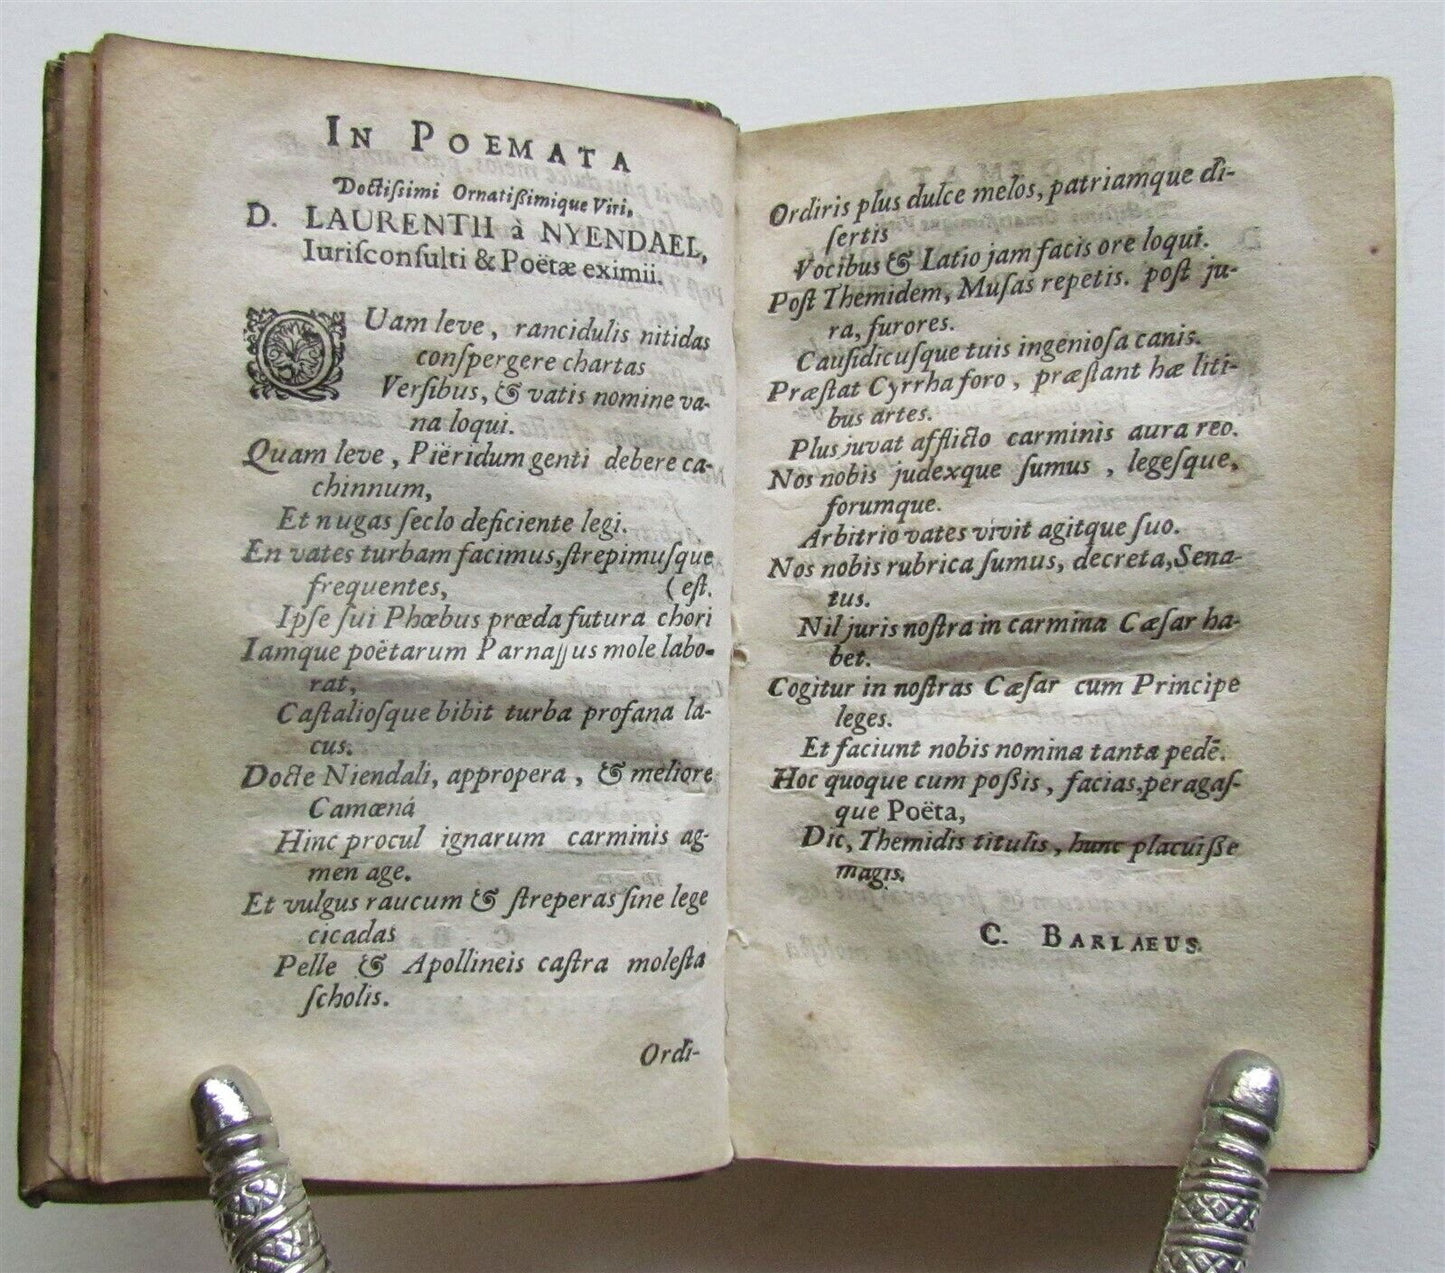 IN POEMATA
Doctiſsimi Ornatiſsimique Viri,
D. LAURENTII à NYENDAEL,
Iuriſconſulti & Poëtæ eximii.
QUam leve, rancidulis nitidas
conſpergere chartas
Verſibus, & vatis nomine va-
na loqui.
Quam leve, Piëridum genti debere ca-
chinnum,
Et nugas ſeclo deficiente legi.
En vates turbam facimus, ſtrepimuſque
frequentes, (eſt.
Ipſe ſui Phœbus præda futura chori
Iamque poëtarum Parnaſſus mole labo-
rat,
Caſtalioſque bibit turba profana la-
cus.
Docte Niendali, appropera, & meliore
Camœnâ
Hinc procul ignarum carminis ag-
men age.
Et vulgus raucum & ſtreperas ſine lege
cicadas
Pelle & Apollineis caſtra moleſta
ſcholis.
Ordi-
Ordiris plus dulce melos, patriamque di-
ſertis
Vocibus & Latio jam facis ore loqui.
Poſt Themidem, Muſas repetis. poſt ju-
ra, furores.
Cauſidicuſque tuis ingenioſa canis.
Præſtat Cyrrha foro, præſtant hæ liti-
bus artes.
Plus juvat afflicto carminis aura reo.
Nos nobis judexque ſumus, legeſque,
forumque.
Arbitrio vates vivit agitque ſuo.
Nos nobis rubrica ſumus, decreta, Sena-
tus.
Nil juris noſtra in carmina Cæſar ha-
bet.
Cogitur in noſtras Cæſar cum Principe
leges.
Et faciunt nobis nomina tanta pedē.
Hoc quoque cum poſsis, facias, peragaſ-
que Poëta,
Dic, Themidis titulis, hunc placuiſſe
magis.
C. BARLAEUS.